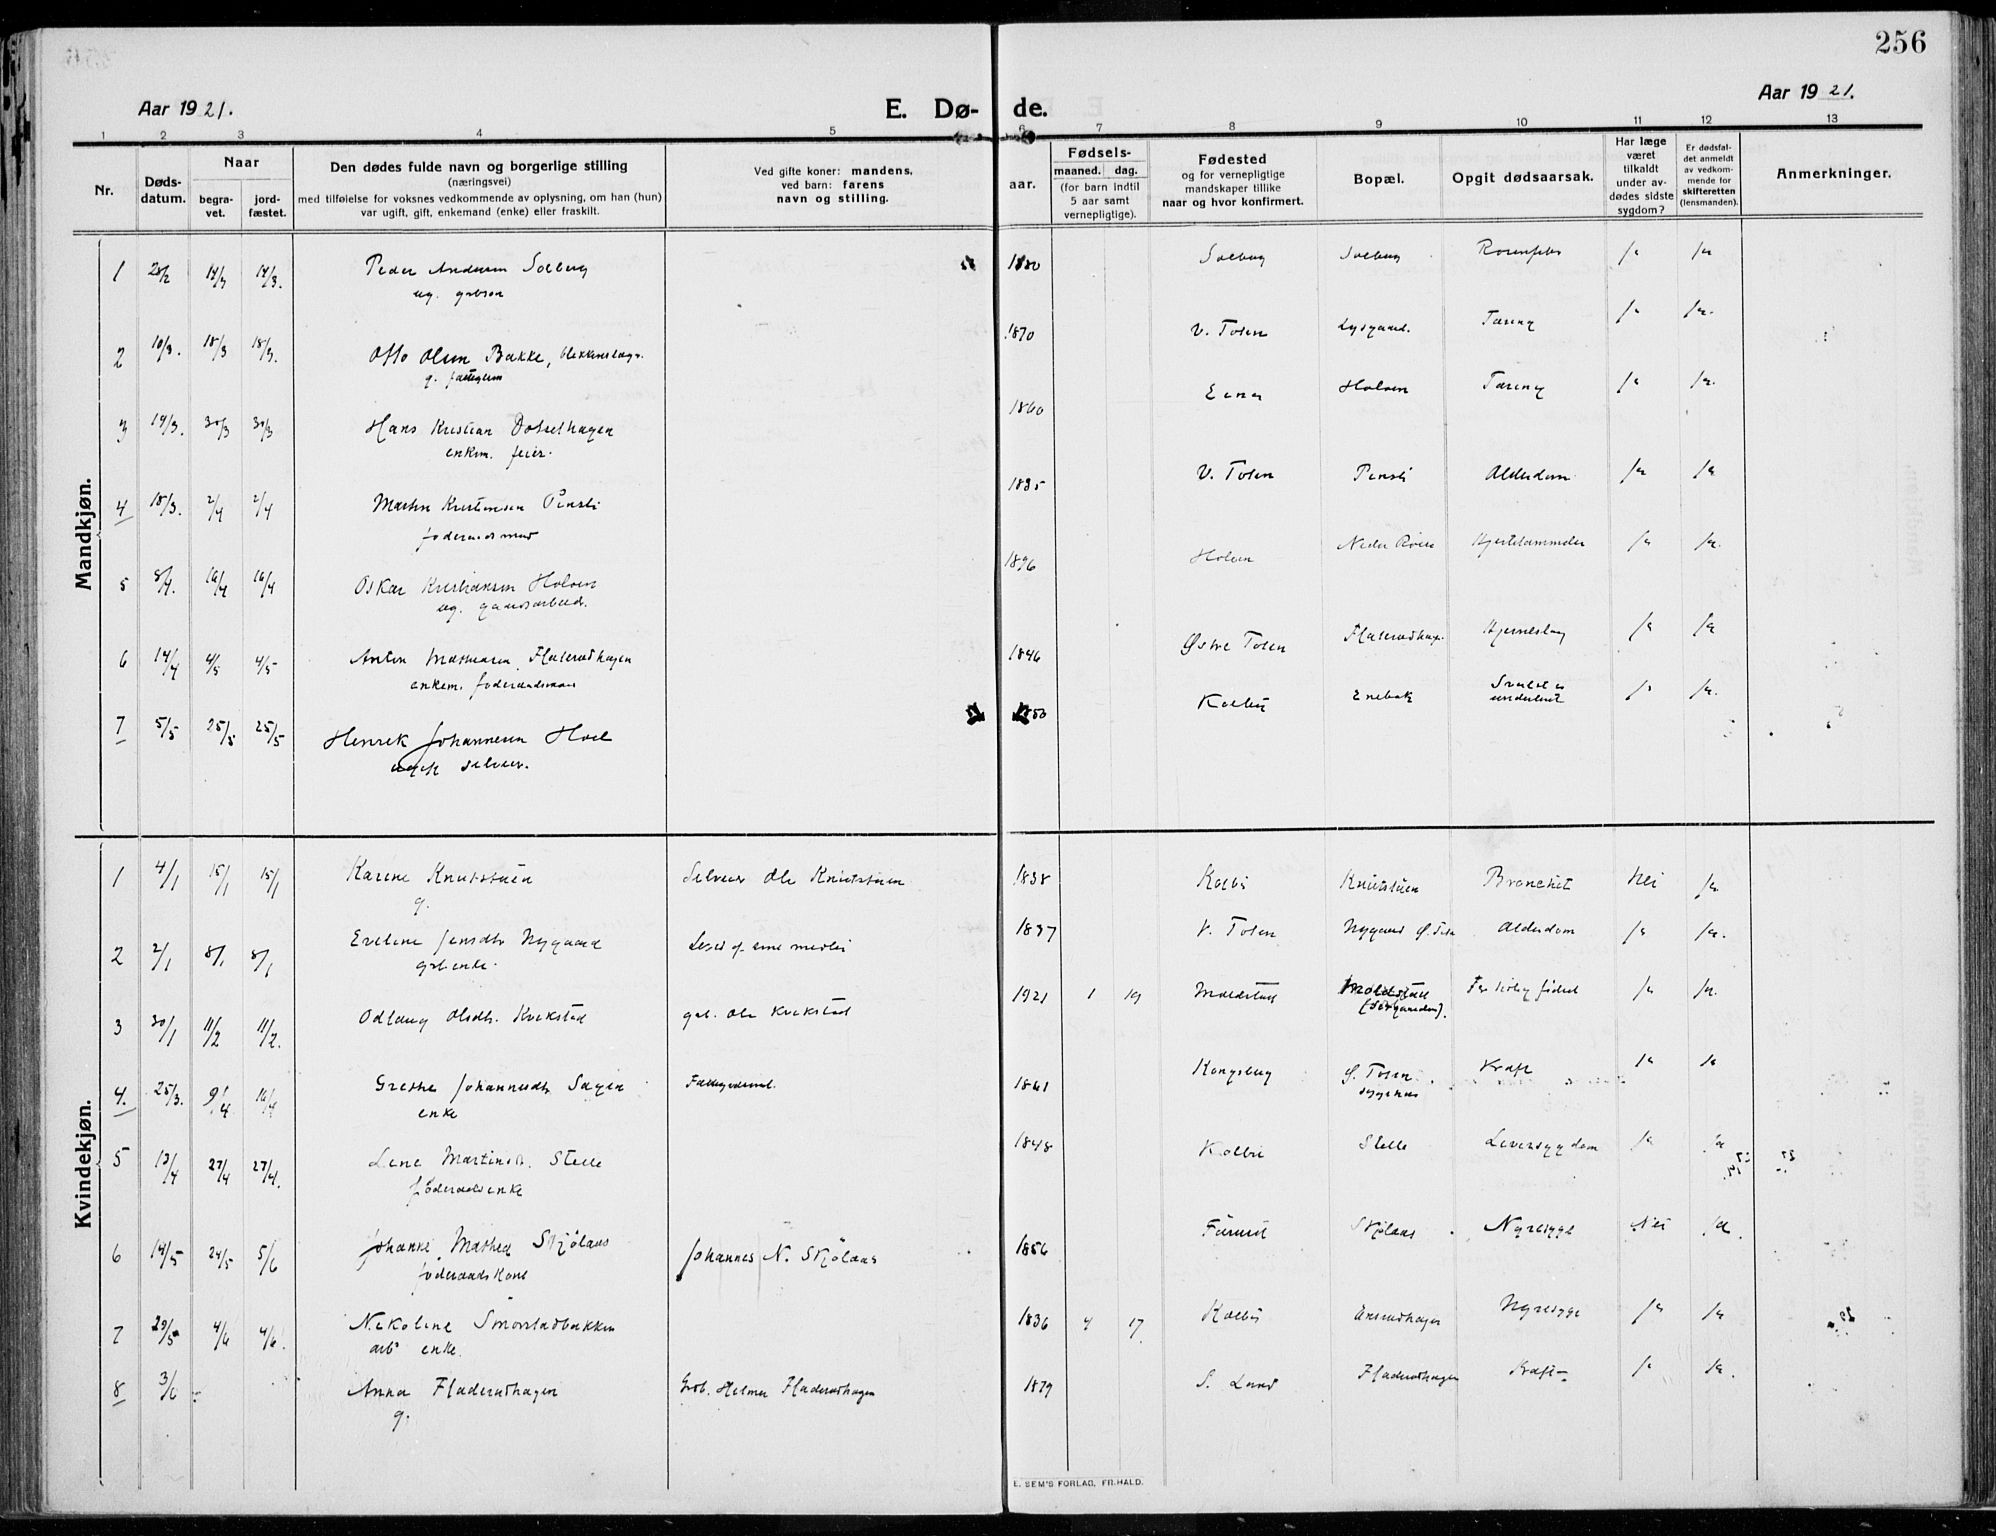 256
Aar 1921.
E. Dø- de.
Aar 1921.
1 2 3 4 5 6 7 8 9 10 11 12 13
Nr.
Døds-
datum.
Naar
begra-
vet.
jord-
fæstet.
Den dødes fulde navn og borgerlige stilling
(næringsvei)
med tilføielse for voksnes vedkommende av oplysning, om han (hun)
var ugift, gift, enkemand (enke) eller fraskilt.
Ved gifte koner: mandens,
ved barn: farens
navn og stilling.
aar.
Fødsels-
maaned. dag.
(for barn indtil
5 aar samt
vernepligtige).
Fødested
og for vernepligtige
mandskaper tillike
naar og hvor konfirmert.
Bopæl.
Opgit dødsaarsak.
Har læge
været
tilkaldt
under av-
dødes sidste
sygdom?
Er dødsfal-
det anmeldt
av vedkom-
mende for
skifteretten
(lensmanden).
Anmerkninger.
Mandkjøn.
1 28/2 14/3 14/3. Peder Andersen Solberg 1880 Solberg Solberg ja ja
ug. gbrsøn
2 10/3. 18/3 18/3. Otto Olsen Bakke, 1870 V. Toten Lysgaard. Tæring ja ja.
g.
3 14/3. 30/3 30/3 Hans Kristian 1860 Eina Holven Tæring ja ja.
enkem. feier.
4 18/3. 2/4 2/4 Martin Kristensen Pensli 1835 V. Toten Pensli Alderdom ja ja
føderaadsmand
5 8/4. 16/4 16/4 Oskar Kristiansen Holven 1896 Holven Hjertelammelse ja ja.
ug. gaardsarbeid.
6 14/4 4/5 4/5 Anton Mathiasen Fladerudhagen 1846 Østre Toten Fladerudhag. Hjerneslag ja ja
enkem. føderaadsmand
7 5/5 25/5 25/5 Henrik Johannesen Hoel 1850 Kolbu Enebak ja ja.
ugift selveier.
Kvindekjøn.
1 4/1 15/1 15/1 Karine Knutstuen Selveier Ole Knutstuen 1838 Kolbu Knutstuen Bronchit Nei ja.
g.
2 2/1 8/1 8/1 Eveline Jensdtr Nygaard 1837 V. Toten Nygaard Alderdom ja ja.
gbr. enke.
3 30/1 11/2 11/2. Odlaug Olsdtr. Kvikstad gbr. Ole Kvikstad 1921 1 19 For tidlig født ja ja.
4. 25/3. 9/4 16/4 Grethe Johannesdtr Sagen 1861 Kongsberg Ø. Toten Kræft ja ja
enke sygehus
5 13/4 27/4 27/4. Lene Martinsdtr. Stelle 1848 Kolbu Stelle Leversygdom ja ja
føderaadsenke
6 14/5 24/5 5/6 Johanne Mathea Skjølaas Johannes N. Skjølaas 1856 Furnes Skjølaas Nyresyge Nei ja.
føderaadskone
7 29/5 4/6 4/6. Nikoline Smørstadbakken 1836 4 17 Kolbu Nyresyge ja ja
arb. enke.
8 3/6 Anna Fladerudhagen Grb. Helmer Fladerudhagen 1879 S. Land Fladerudhagen Kræft ja ja.
g.
E. SEM'S FORLAG, FR.HALD.